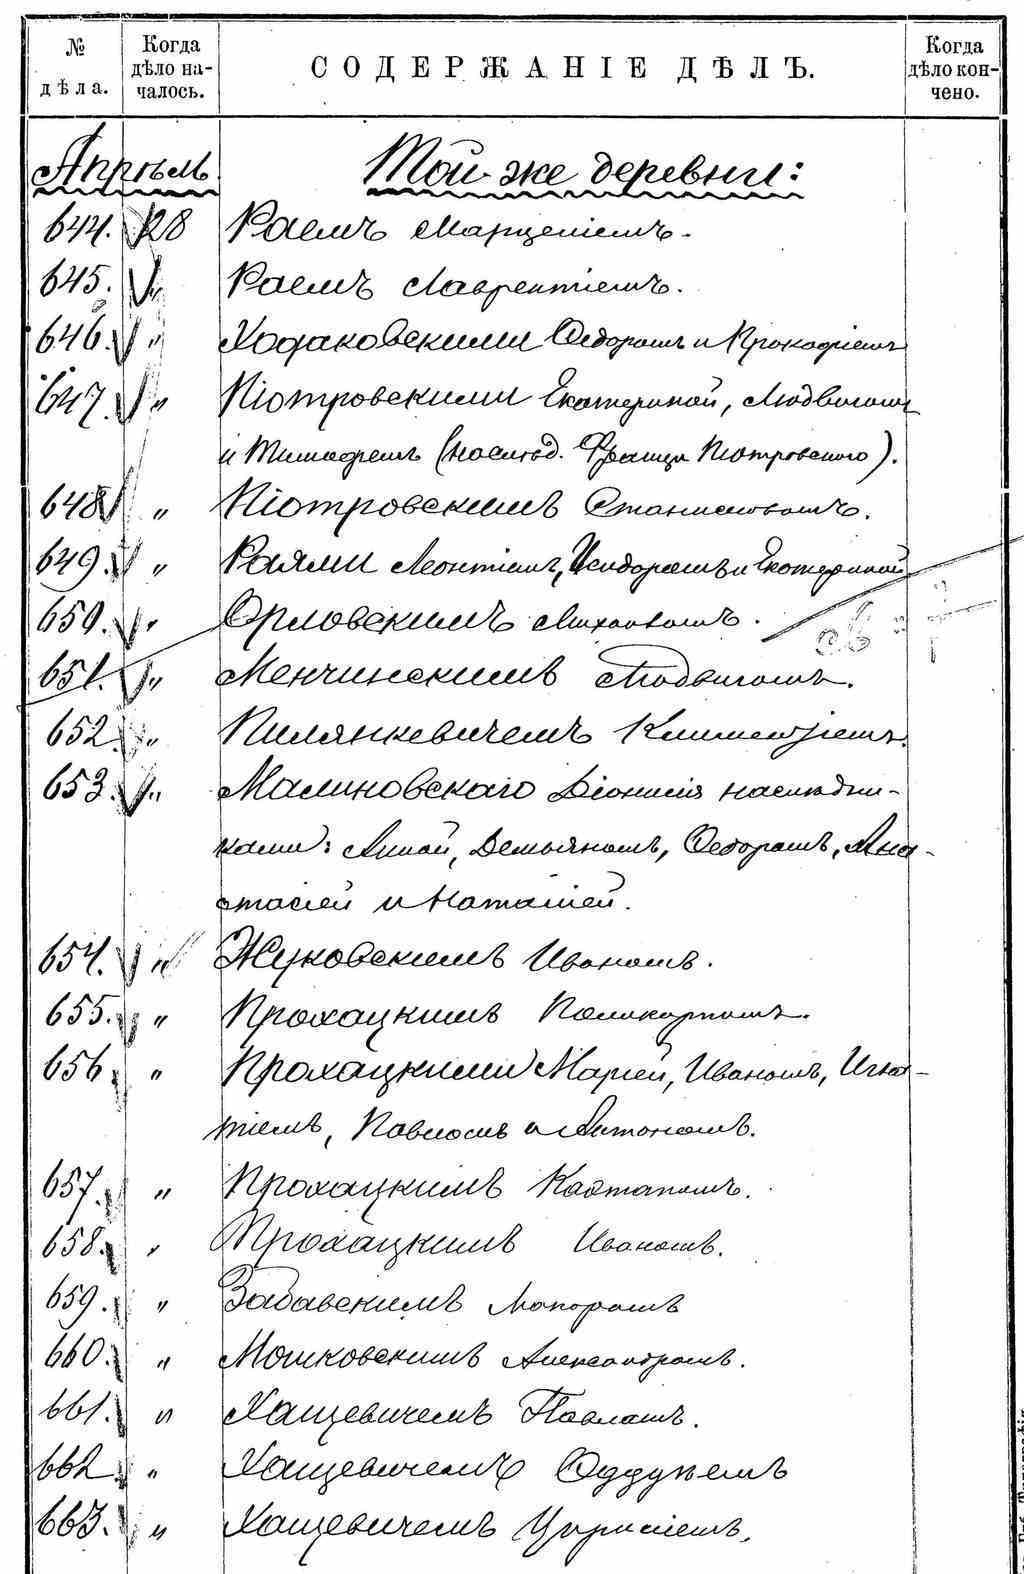 № дѣла.
Когда дѣло началось.
СОДЕРЖАНІЕ ДѢЛЪ.
Когда дѣло кончено.
Апрѣль
Той-же деревни:
644. 28 Раемъ Марцеліемъ.
645. " Раемъ Лаврентіемъ.
646. " Ходаковскими Ѳедоромъ и Прокофіемъ
647. " Піотровскими Екатериной, Людвигомъ
и Тимофеемъ (наслѣд. Франца Піотровскаго).
648 " Піотровскимъ Станиславомъ.
649. " Раями Леонтіемъ, Исидоромъ и Екатериной
650. " Орловскимъ Михаиломъ.
651. " Менчинскимъ Людвигомъ.
652 " Пилянкевичемъ Климентіемъ.
653. " Малиновскаго Діонисія наслѣдни-
ками: Анной, Демьяномъ, Ѳедоромъ, Ана-
стасіей и Наталіей.
654. " Жуковскимъ Иваномъ.
655. " Прохацкимъ Поликарпомъ.
656 " Прохацкими Маріей, Иваномъ, Игна-
тіемъ, Павломъ и Антономъ.
657. " Прохацкимъ Каэтаномъ.
658. " Прохацкимъ Иваномъ.
659. " Забавскимъ Макаромъ
660. " Мошковскимъ Александромъ.
661. " Хащевичемъ Павломъ.
662 " Хащевичемъ
663. " Хащевичемъ